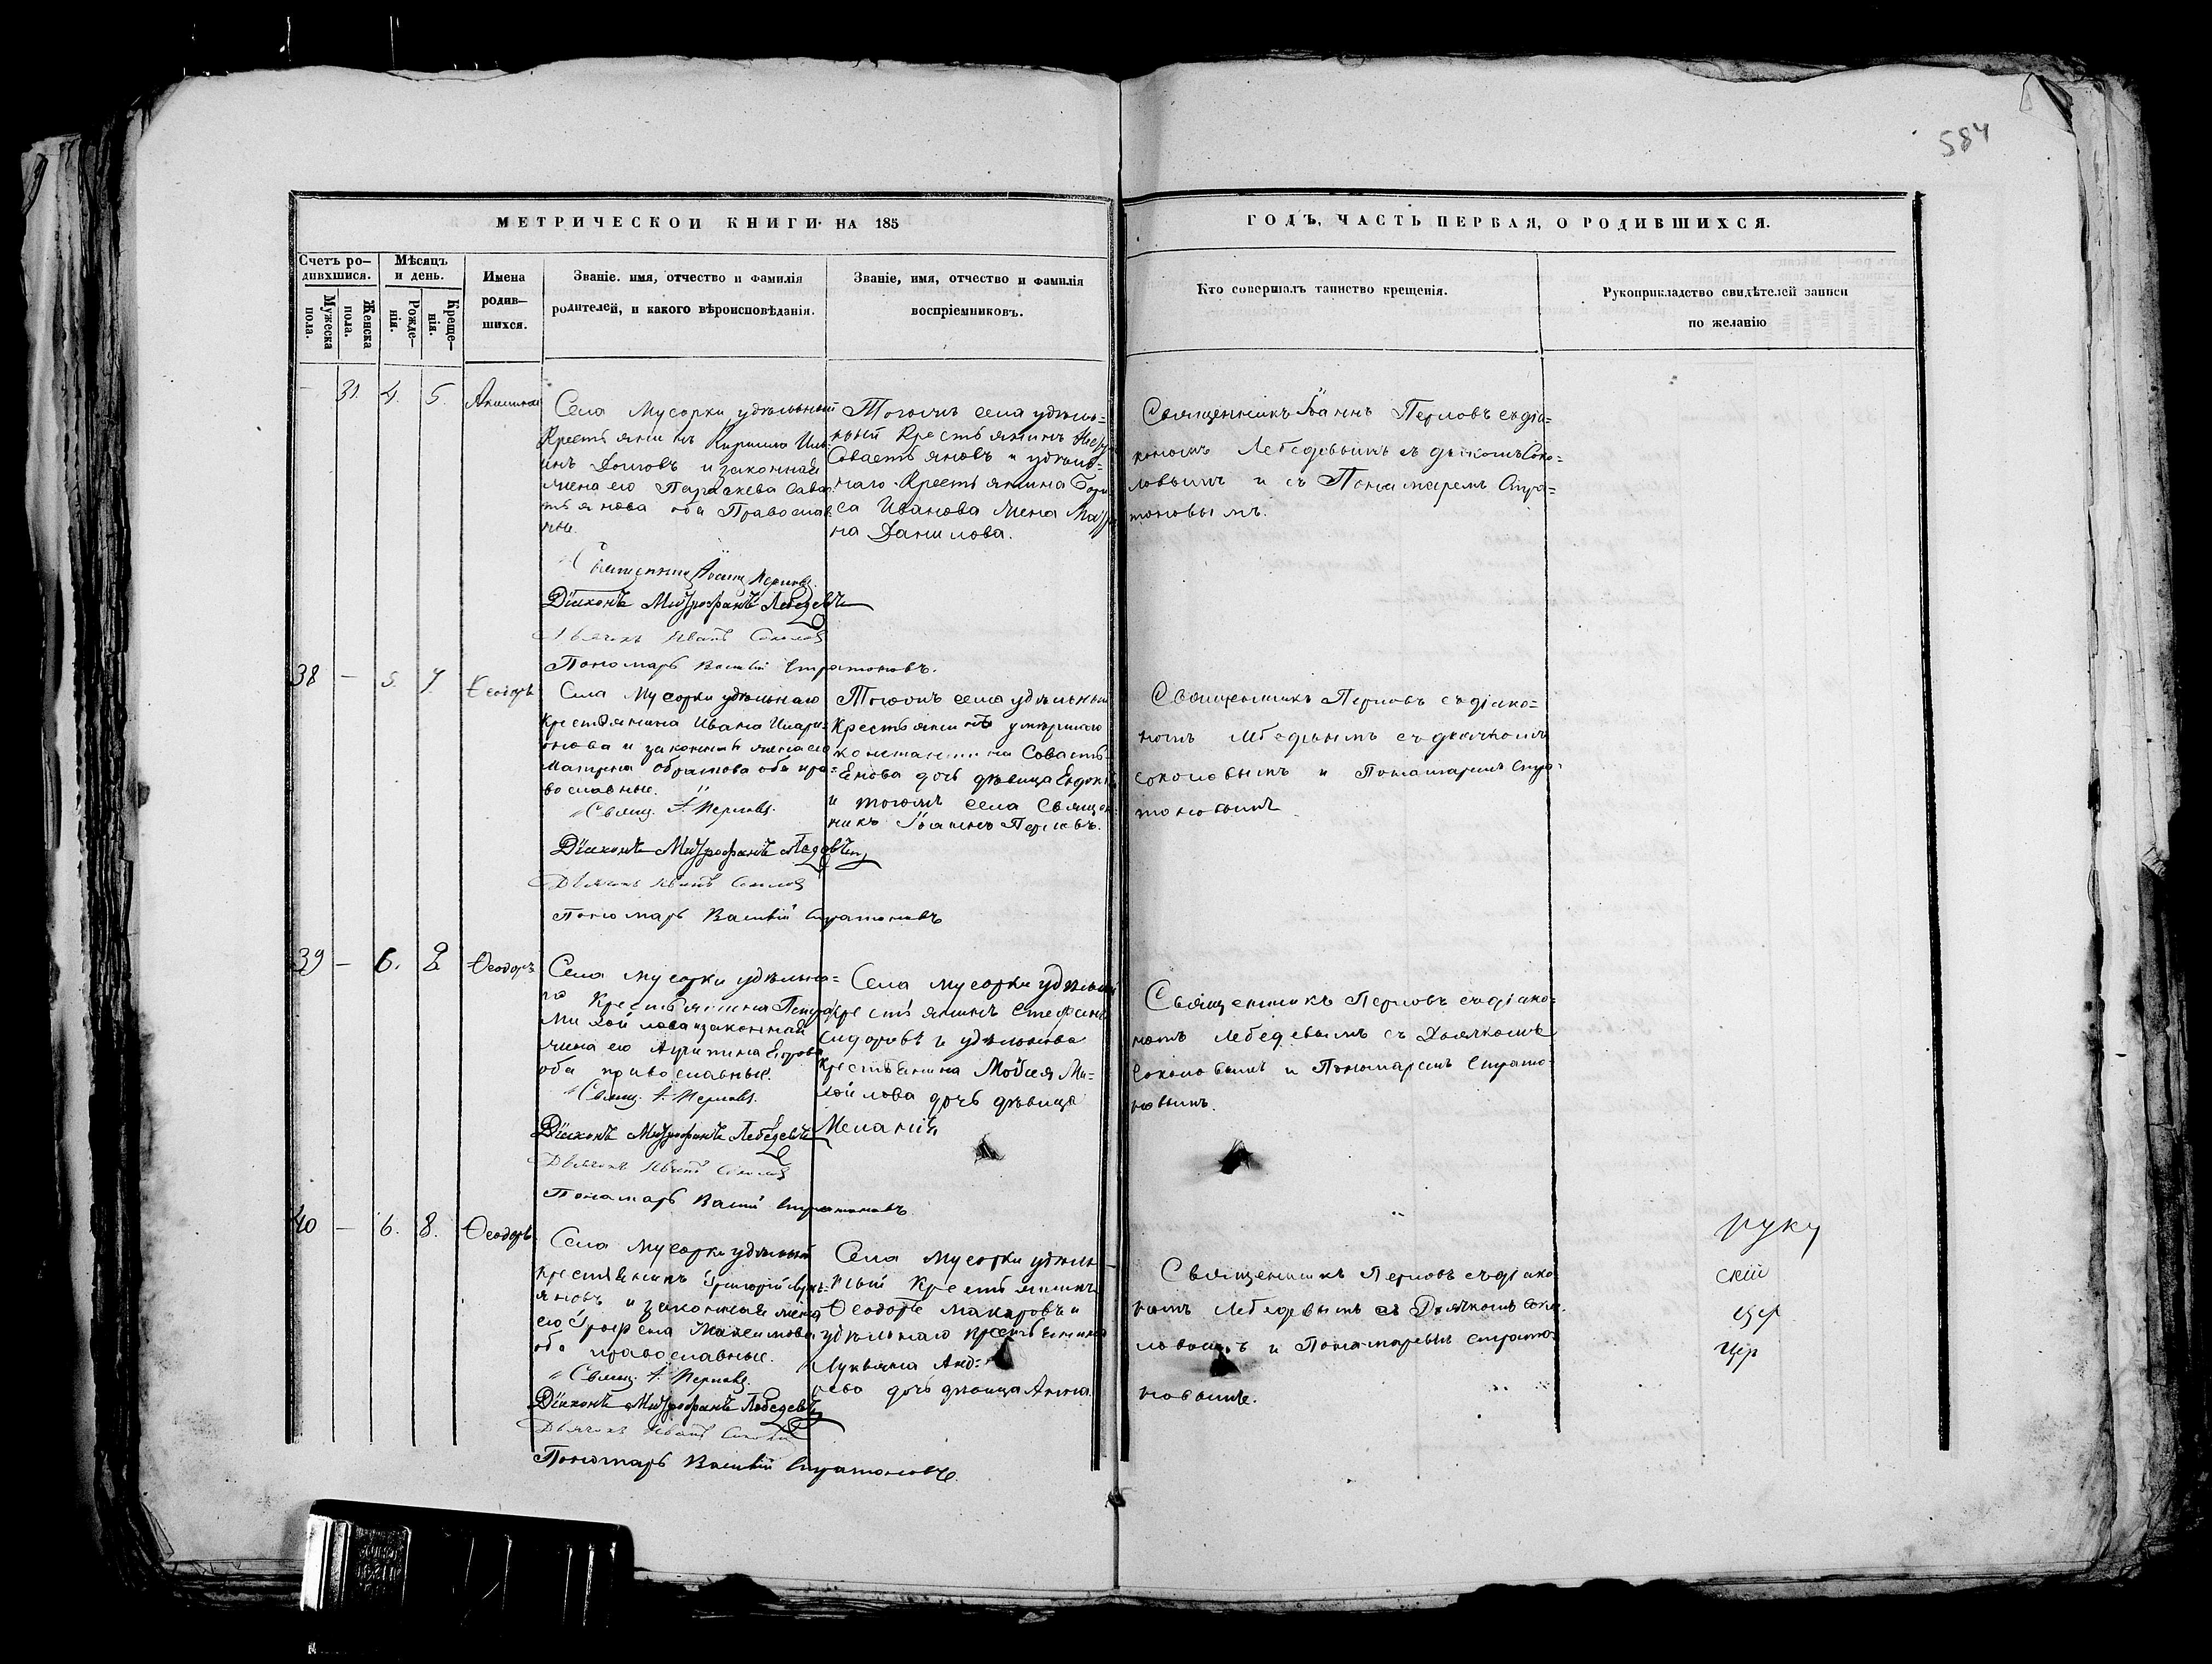 584
МЕТРИЧЕСКОЙ КНИГИ НА 185
ГОДЪ, ЧАСТЬ ПЕРВАЯ, О РОДИВШИХСЯ.
Счетъ ро-
дившихся.
Мужеска
пола.
Женска
пола.
Мѣсяцъ
и день.
Рожде-
нія.
Креще-
нія.
Имена
родив-
шихся.
Званіе. имя, отчество и фамилія
родителей, и какого вѣроисповѣданія.
Званіе, имя, отчество и фамилія
воспріемниковъ.
Кто совершалъ таинство крещенія.
Рукоприкладство свидѣтелей записи
по желанію
— 31 4. 5.
Села Мусорки удѣльный
Крестьянинъ Кирилла
и законная
жена его Параскева Савас
тьянова оба Православ
ные.
Священникъ Іоаннъ Перловъ.
Діаконъ Митрофанъ Лебедевъ
Дьячокъ Иванъ Соколовъ
Пономарь Василій Стратоновъ.
Тогожъ села удѣль=
ный Крестьянинъ
Савастьяновъ и удѣль=
наго Крестьянина Бори
са Иванова жена
на Данилова.
Священникъ Іоаннъ Перловъ съ діа=
кономъ Лебедевымъ съ дьякомъ Соко=
ловымъ и съ Понамаремъ Стра=
тоновымъ.
38 — 5. 7. Ѳеодоръ
Села Мусорки удѣльнаго
Крестьянина Ивана Илари
онова и законная жена его
Матрена оба пра=
вославные.
Свящ. І. Перловъ.
Діаконъ Митрофанъ
Дьячокъ Иванъ Соколовъ
Пономарь Василій Стратоновъ
Тогожъ села удѣльный
Крестьянинъ умершаго
Константина Савасть
Енова дочь дѣвица
и тогожъ села Священ
никъ Іоаннъ Перловъ.
Священникъ Перловъ съ діако=
номъ съ дьячкомъ
Соколовымъ и Понамаремъ Стра=
тоновымъ
39 — 6. 8 Ѳеодоръ
Села Мусорки удѣльна=
го Крестьянина Петра
Михойлова и законная
жена его Егорова
оба православные.
Свящ. І. Перловъ.
Діаконъ Митрофанъ Лебедевъ
Дьячокъ Иванъ Соколовъ
Пономарь Васлій Стратоновъ
Села Мусорки удѣльный
Крестьянинъ Стефанъ
Сидоровъ и удѣльнова
крестьянина Мойсея Ми=
хойлова дочь дѣвица
Меланія
Священникъ Перловъ съ діако=
номъ Лебедевымъ съ Дьячкомъ
Соколовымъ и Пономаремъ Страто
новымъ.
40 — 6. 8. Ѳеодоръ
Села Мусорки удѣльный
крестьянинъ Григорій
яновъ и законная жена
его Максимова
оба православные.
Свящ. І. Перловъ.
Діаконъ Митрофанъ Лебедевъ
Дьячокъ Иванъ
Пономарь Василій Стратоновъ
Села Мусорки удѣль
ный Крестьянинъ
Ѳеодоръ Макаровъ и
удѣльнаго крестьянина
Лукьяна
дочь дѣвица Анна.
Священникъ Перловъ съ діако
номъ Лебедевымъ съ Дьячкомъ Соко
ловымъ и Понамаремъ Страто
новымъ.
руку